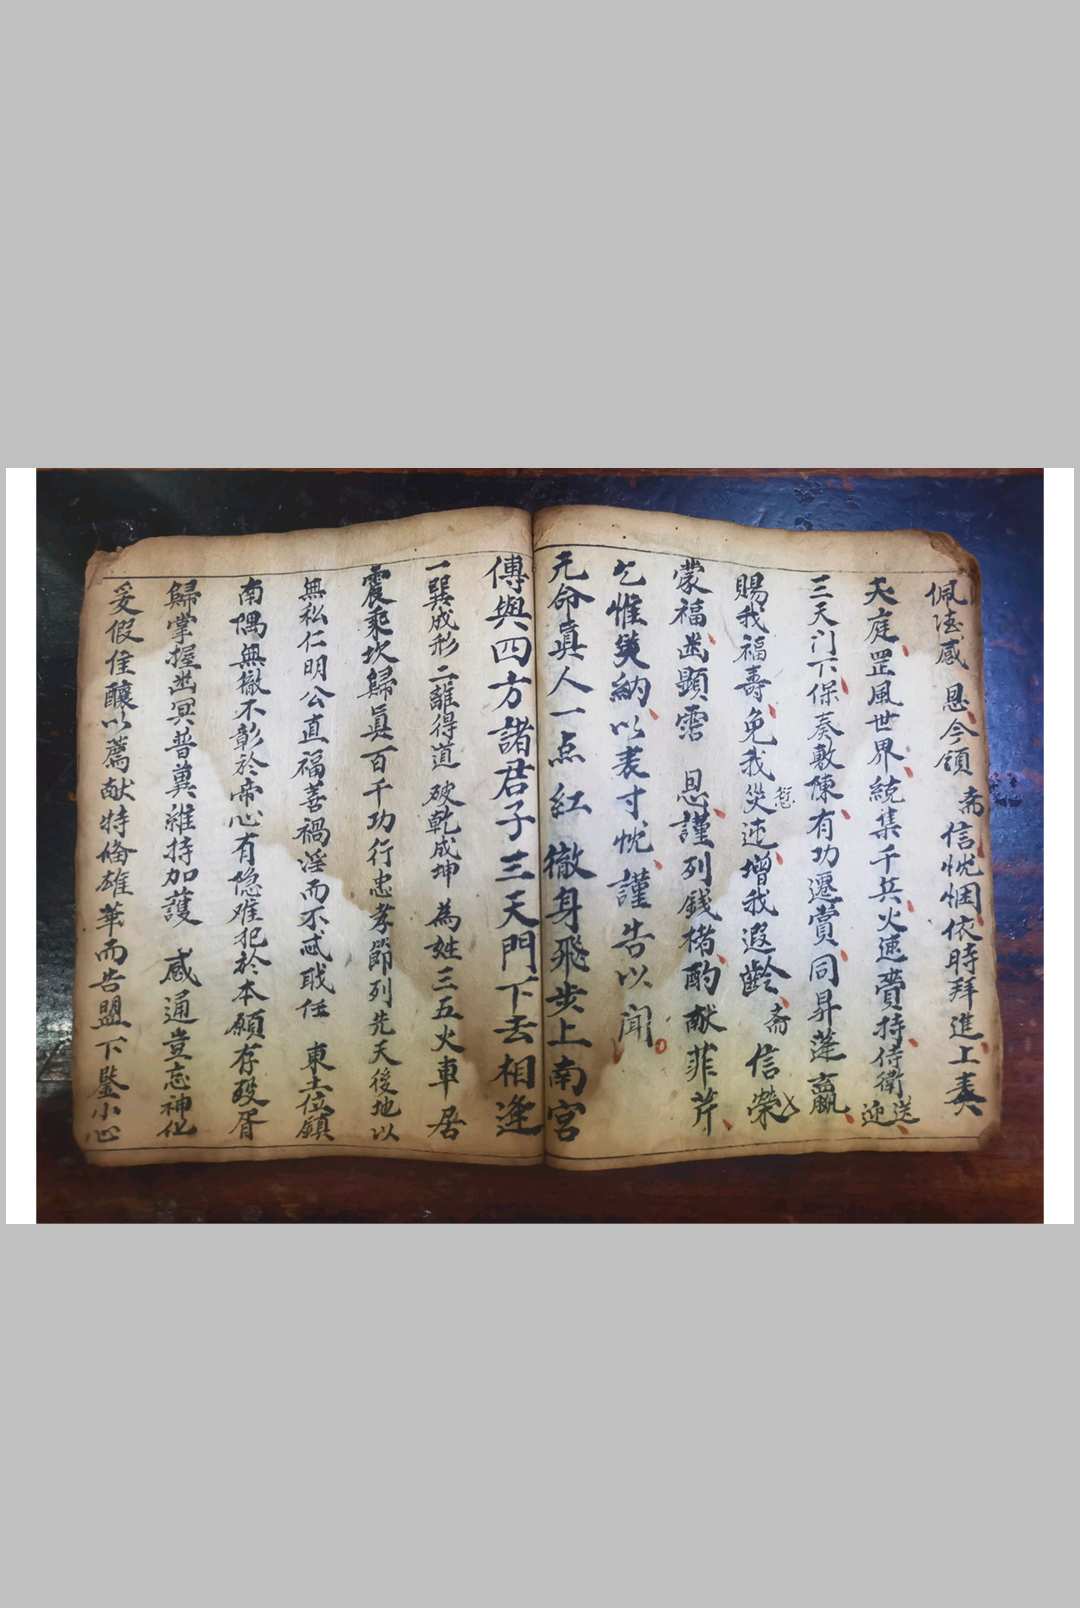 佩德感　恩今領　斋信忱悃依時拜進上奏
天庭罡風世界統集千兵火速賫持侍衛迎送
三天门下保奏敷陳有功遷賞同昇蓬瀛
賜我福壽免我災愆增我遐齡斋信榮
蒙福幽顯霑　恩謹列錢楮酌献菲芹
乞惟笑納以表寸忱謹告以聞
元命真人一点紅徹身飛步上南宮
傳與四方諸君子三天門下去相逢
一巽成形二離得道破乾成坤為姓三五火車居
震乘坎歸真百千功行忠孝節列先天後地以
無私仁明公直福善禍淫而不忒職任　東土位鎮
南隅無徹不彰於帝心有隐难犯於本願存殁胥
歸掌握幽冥普冀維持加護　感通豈忘神化
妥假佳釀以薦献特俻雄華而告盟下鑒小心